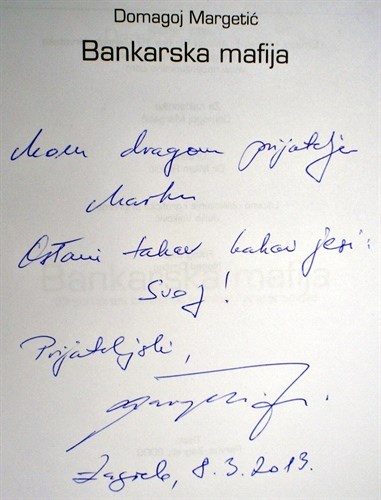 Domagoj Margetić
Bankarska mafija
Mom dragom prijatelju
Marku
Ostani takav kakav jesi:
Svoj!
Prijateljski,
Zagreb, 8.3.2013.